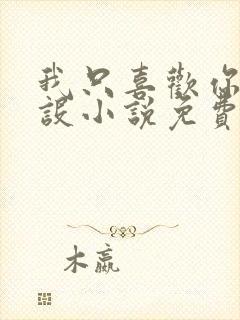 我只喜歡你
設小說免費
木嬴